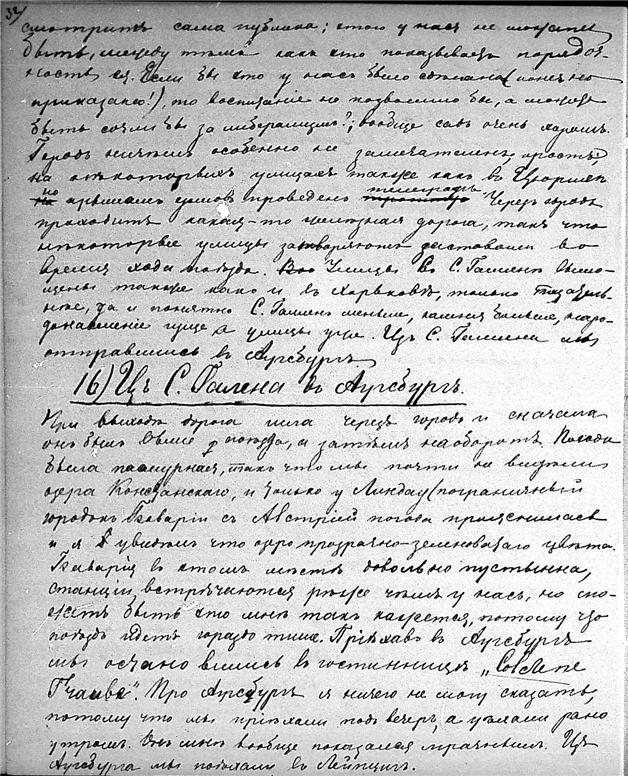 32)
смотритъ сама публика; этого у насъ не можетъ
быть, между тѣмъ какъ это показываетъ порядоч-
ность ея. Если бы это у насъ было сдѣлано (конечно
приказано!), то воспитаніе не позволило бы, а может
быть сочли бы за либерализмъ?; вообще садъ очень хорошъ.
Городъ ничѣмъ особенно не замѣчателенъ, простъ,
на нѣкоторыхъ улицахъ также какъ в Цюрихѣ
по крышамъ домовъ проведенъ телеграфъ. Черезъ городъ
проходитъ какая-то желѣзная дорога, такъ что
нѣкоторые улицы затворяютъ заставами во
время хода поѣзда. Улицы въ С. Галленѣ вымо-
щены также какъ и въ Харьковѣ, только тщатель-
нѣе, да и понятно С. Галленъ меньше, камня больше, наро-
донаселеніе гуще а улицы уже. Изъ С. Галлена мы
отправились въ Аугсбургъ
16) Изъ С. Галена въ Аугсбургъ.
При выходѣ дорога шла черезъ городъ и сначала
онъ былъ выше поѣзда, а затѣмъ наоборотъ. Погода
была пасмурная, такъ что мы почти не видѣли
озера Констанскаго, и только у Линдау (пограничный
городокъ Баваріи съ Австріей) погода прояснилась
и я увидѣлъ что озеро прозрачно-зеленоватаго цвѣта.
Баварія въ этомъ мѣстѣ довольно пустынна,
станціи встрѣчаются рѣже чѣмъ у насъ, но мо-
жетъ быть это мнѣ такъ кажется, потому что
поѣздъ идетъ гораздо тише. Пріѣхавъ въ Аугсбургъ
мы остановились въ гостинницѣ
Про Аугсбургъ я ничего не могу сказать,
потому что мы пріѣхали подъ вечеръ, а уѣхали рано
утромъ. Онъ мнѣ вообще показался мрачнымъ. Изъ
Аугсбурга мы поѣхали въ Лейпцигъ.